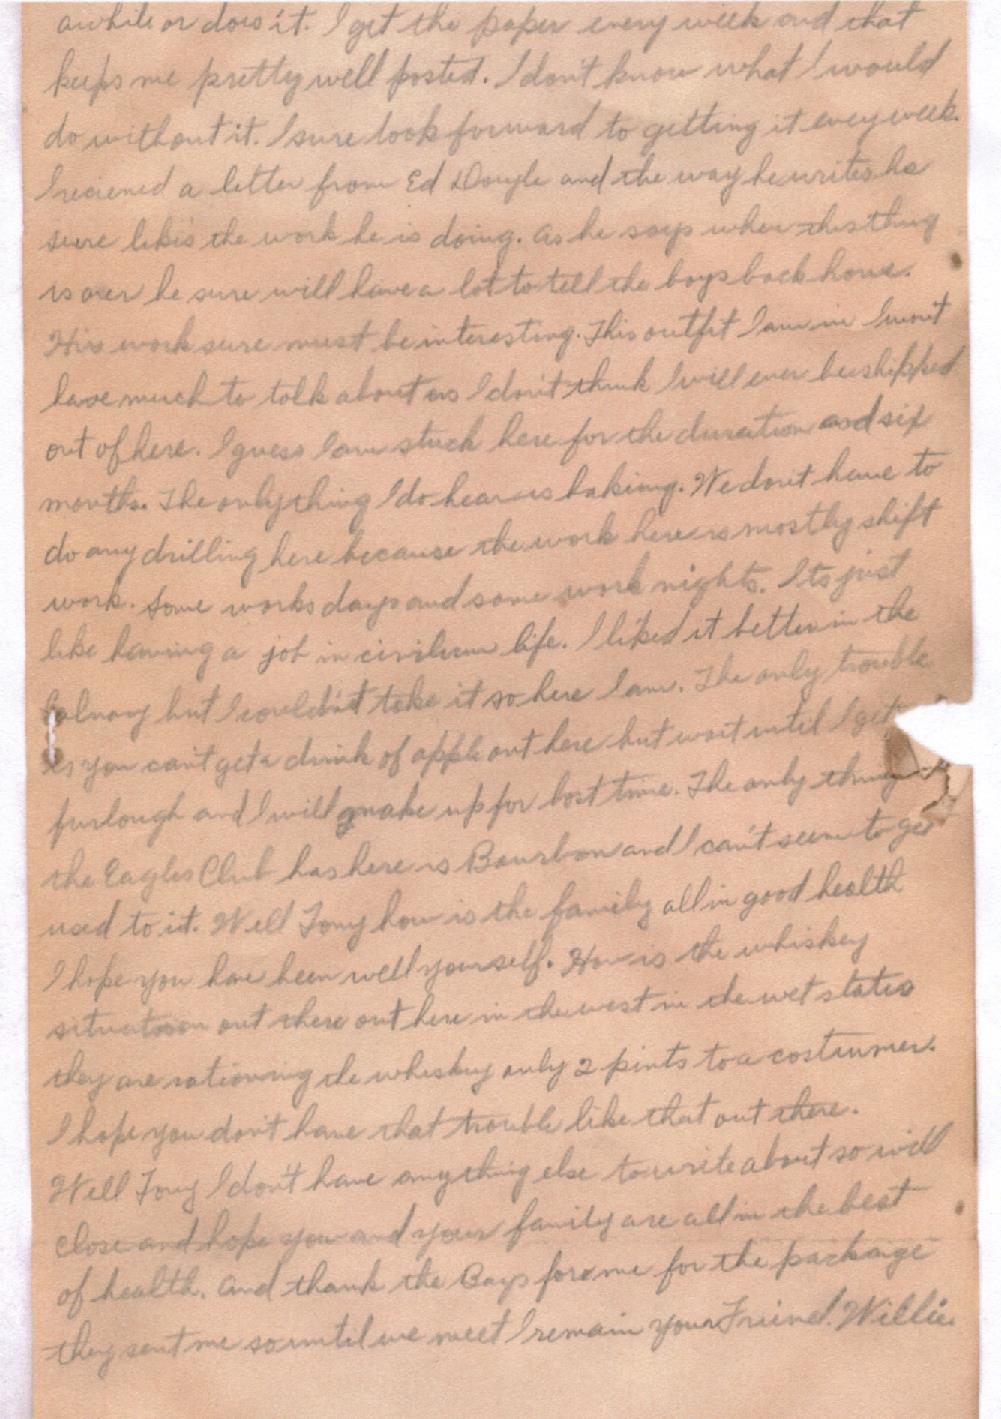 awhile or does it. I get the paper every week and that
keeps me pretty well posted. I don't know what I would
do without it. I sure look forward to getting it every week.
I reciened a letter from Ed Doyle and the way he writes he
sure likes the work he is doing. As he says when this thing
is over he sure will have a lot to tell the boys back home.
His work sure must be interesting. This outfit I am in I won't
have much to talk about as I don't think I will ever be shipped
out of here. I guess I am stuck here for the duration and six
months. The only thing I do here is baking. We dont have to
do any drilling here because the work here is mostly shift
work. Some works days and some work nights. Its just
like having a job in civilian life. I liked it better in the
Calvary but I couldn't take it so here I am. The only trouble
is you can't get a drink of apple out here but wait until I get
furlough and I will make up for lost time. The only thing
the Eagles Club has here is Bourbon and I can't seem to get
used to it. Well Tony how is the family all in good health
I hope you have been well yourself. How is the whiskey
situation out there out here in the west in the wet states
they are rationing the whiskey only 2 pints to a costumer.
I hope you don't have that trouble like that out there.
Well Tony I don't have anything else to write about so will
close and hope you and your family are all in the best
of health. And thank the Boys for me for the package
they sent me so until we meet I remain your Friend. Willie.